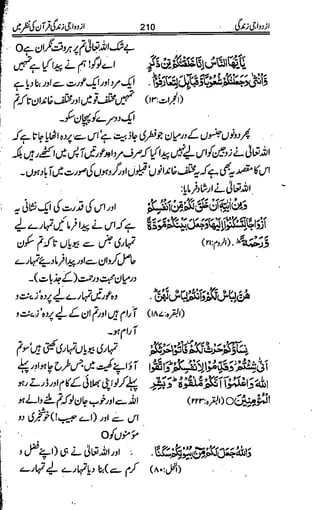 ازدواجی زندگی 210 ازدواجی زندگی قرآن کی نظر میں
بے شک اللہ تعالیٰ تم پر ہر وقت نگران ہے O
يٰٓاَيُّهَا النَّاسُ اِنَّا خَلَقْنٰكُمْ مِّنْ ذَكَرٍ
وَّاُنْثٰى وَجَعَلْنٰكُمْ شُعُوْبًا وَّقَبَآئِلَ لِتَعَارَفُوْا۔
(الحجرات:۱۳)
اے لوگو! ہم نے پیدا کیا ہے تمہیں
ایک مرد اور ایک عورت سے اور بنا دیا ہے
تمہیں مختلف قومیں اور مختلف خاندان تاکہ تم
ایک دوسرے کو پہچان سکو۔
پھر دونوں جنسوں کے درمیان جو فطری جاذبیت ہے اس سے پردہ اٹھایا جاتا ہے کہ
اللہ تعالیٰ نے زوجین کو اس لیے نہیں پیدا کیا کہ صرف مرد اور عورتیں آپس میں اکٹھے رہیں بلکہ
اس کا مقصد یہ بھی ہے کہ یہ مختلف خاندانوں، قبیلوں اور گروہوں کی صورت میں آباد ہوں۔
اللہ تعالیٰ نے ارشاد فرمایا:
وَمِنْ اٰيٰتِهٖٓ اَنْ خَلَقَ لَكُمْ مِّنْ اَنْفُسِكُمْ
اَزْوَاجًا لِّتَسْكُنُوْٓا اِلَيْهَا وَجَعَلَ بَيْنَكُمْ مَّوَدَّةً
وَّرَحْمَةً (الروم:۲۱)
اور اس کی قدرت کی ایک نشانی یہ
ہے کہ اس نے پیدا فرمائیں تمہارے لیے
تمہاری جنس سے بیویاں تاکہ تم سکون
حاصل کرو ان سے اور پیدا فرما دیئے تمہارے
درمیان محبت و رحمت (کے جذبات)۔
هُنَّ لِبَاسٌ لَّكُمْ وَاَنْتُمْ لِبَاسٌ لَّهُنَّ۔
(البقرہ:۱۸۷)
وہ عورتیں تمہارے لیے پردہ، زینت و
آرام ہیں اور تم ان کے لیے پردہ، زینت و
آرام ہو۔
نِسَآؤُكُمْ حَرْثٌ لَّكُمْ فَاْتُوْا حَرْثَكُمْ
اَنّٰى شِئْتُمْ وَقَدِّمُوْا لِاَنْفُسِكُمْ وَاتَّقُوا
اللّٰهَ وَاعْلَمُوْٓا اَنَّكُمْ مُّلٰقُوْهُ وَبَشِّرِ
الْمُؤْمِنِيْنَ O (البقرہ:۲۲۳)
تمہاری بیویاں تمہاری کھیتی ہیں سو تم
آؤ اپنے کھیت میں جس طرح چاہو اور پہلے
پہلے کر لو اپنی بھلائی کے کام اور ڈرتے رہو
اللہ سے اور خوب جان لو کہ تم ملنے والے ہو
اس سے اور (اے حبیب!) خوشخبری دو
مؤمنوں کو O
وَاللّٰهُ جَعَلَ لَكُمْ مِّنْۢ بُيُوْتِكُمْ سَكَنًا۔
(النحل:۸۰)
اور اللہ تعالیٰ نے ہی (اپنے فضل و
کرم سے) بنا دیا تمہارے لیے تمہارے